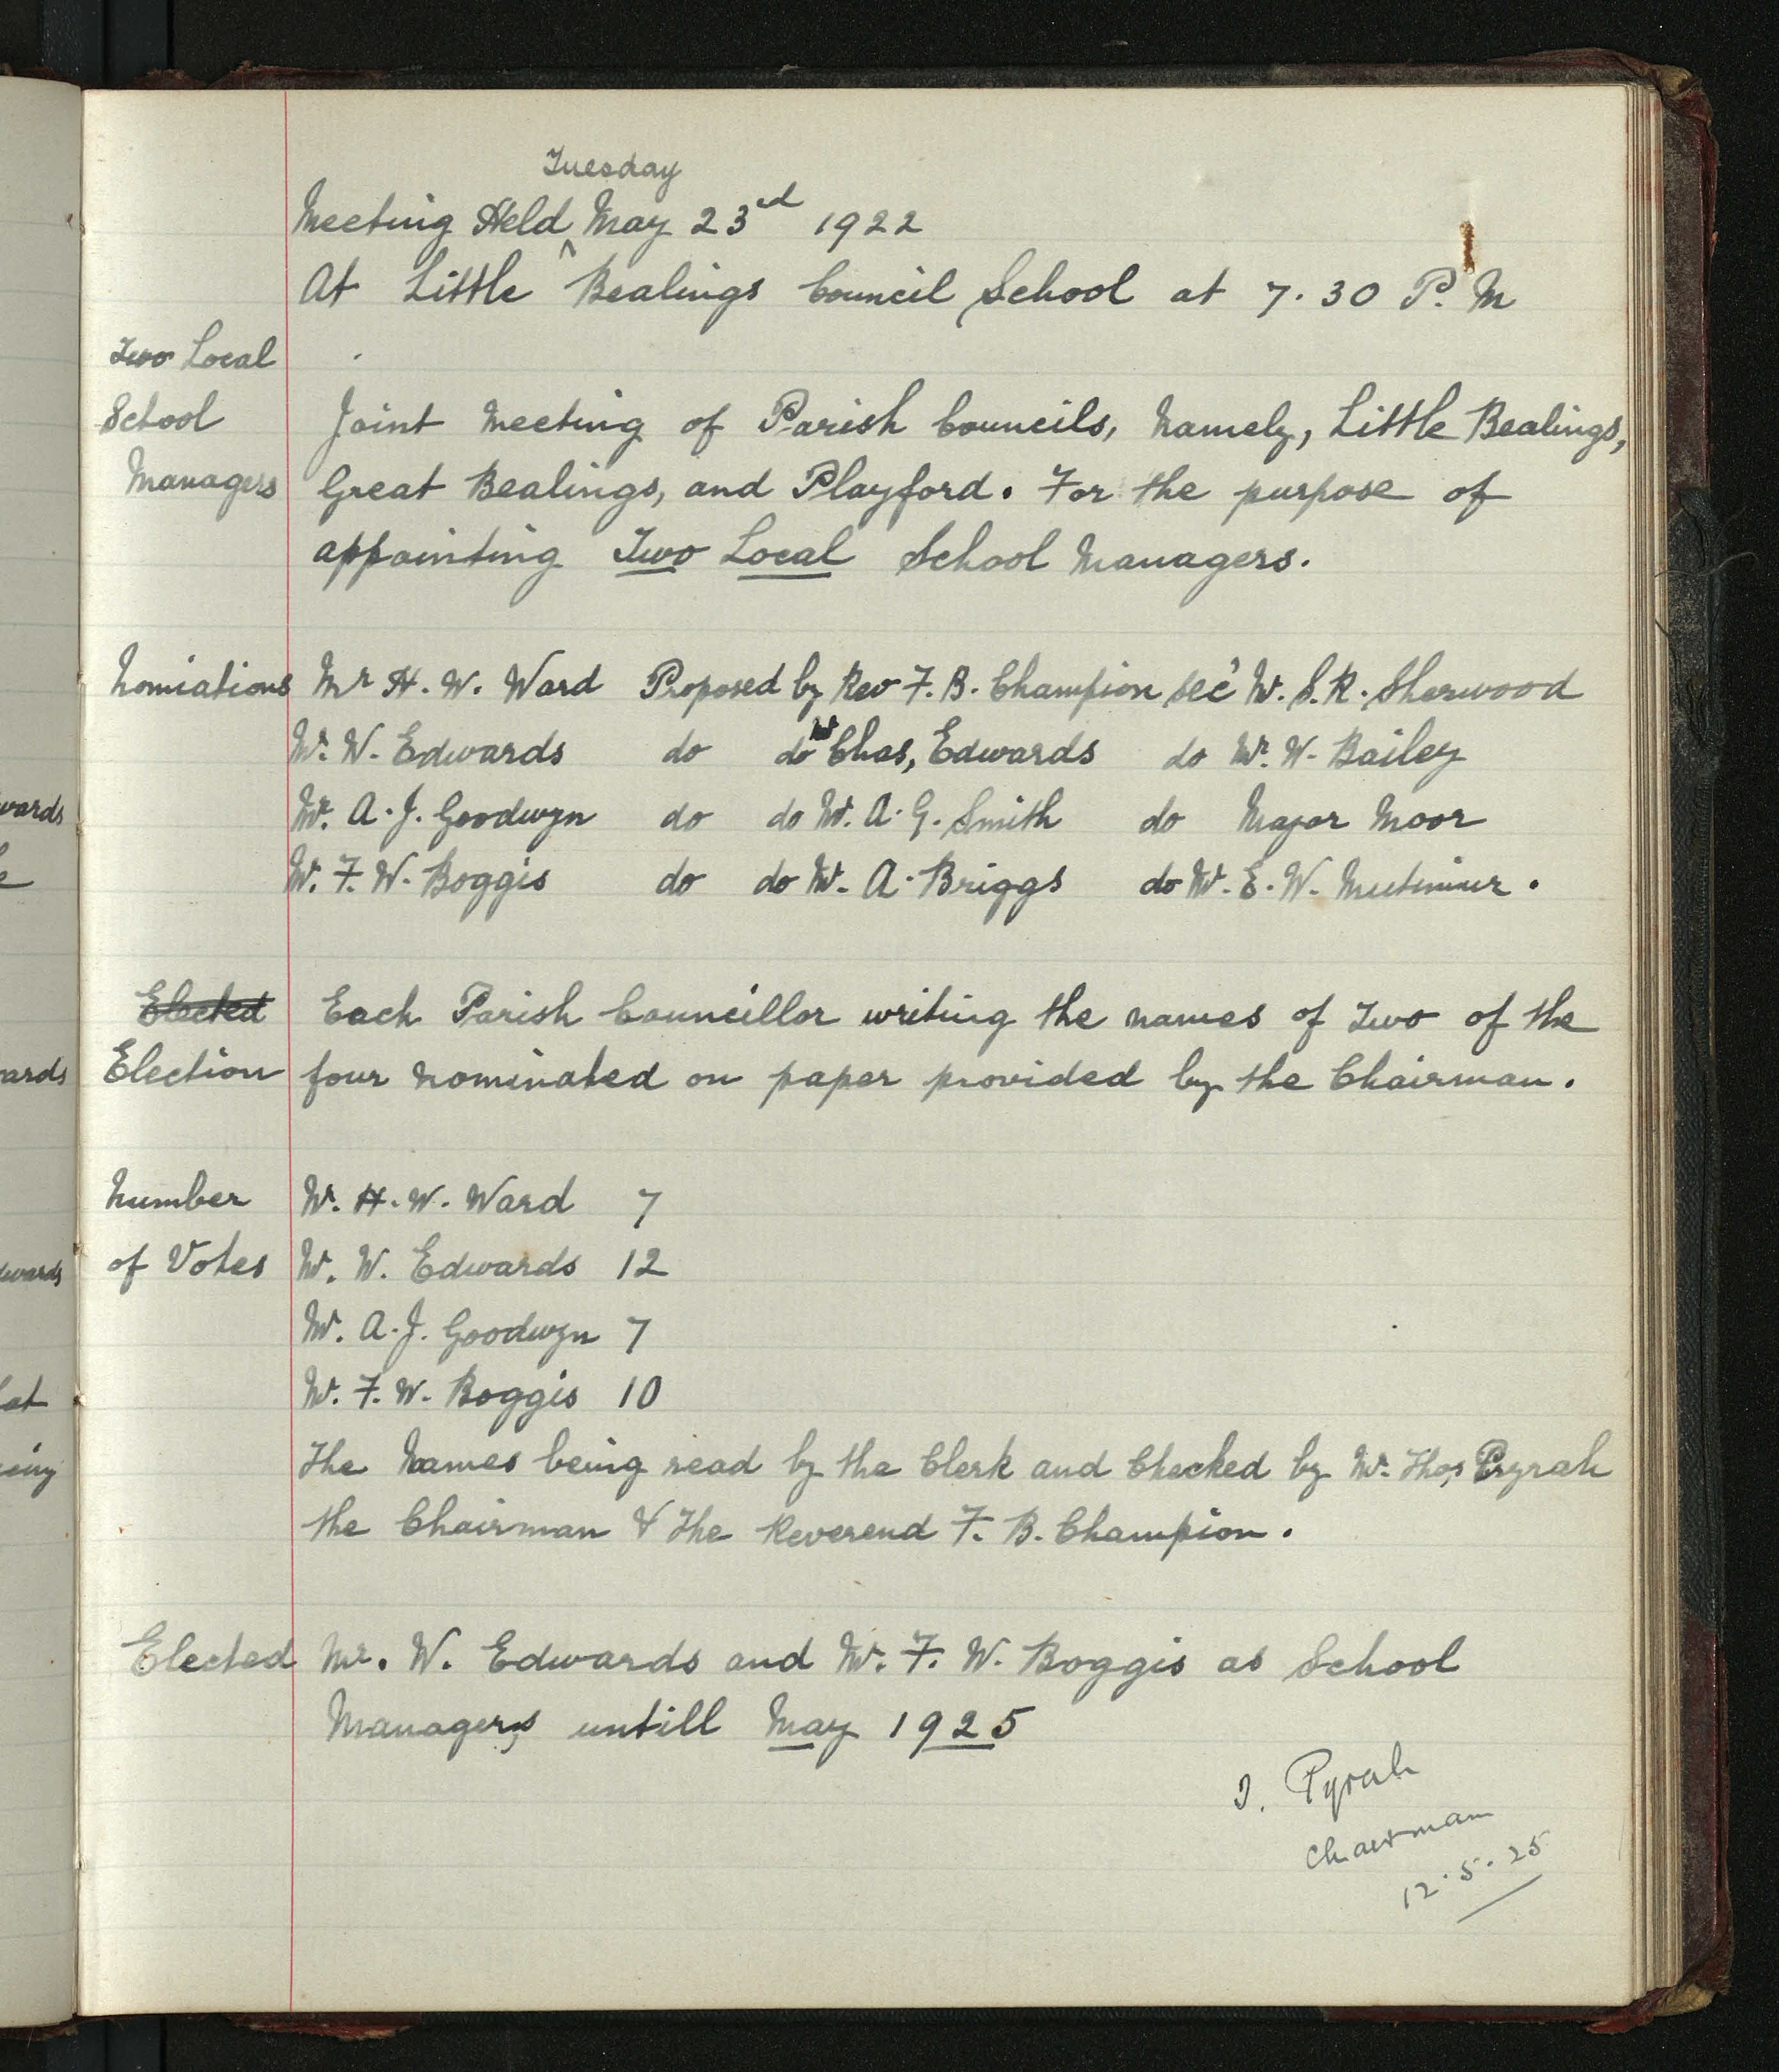 Tuesday
Meeting Held ^ May 23rd 1922
At Little Bealings Council School at 7.30 P.M
Two Local
School
Managers
Joint Meeting of Parish Councils, Namely, Little Bealings,
Great Bealings, and Playford. For the purpose of
appointing Two Local School Managers.
Nomiations Mr H. W. Ward Proposed by Rev F. B. Champion Sec' Mr. S. R. Sherwood
Mr. W. Edwards do do Mr Chas, Edwards do Mr. W. Bailey
Mr. A. J. Goodwyn do do Mr. A. G. Smith do Major Moor
Mr. F. W. Boggis do do Mr. A. Briggs do Mr. E. W. Mutimer.
Elected Each Parish Councillor writing the names of Two of the
Election four Nominated on paper provided by the Chairman.
Number Mr. H. W. Ward 7
of Votes Mr. W. Edwards 12
Mr. A. J. Goodwyn 7
Mr. F. W. Boggis 10
The Names being read by the Clerk and Checked by Mr. Thos Pyrah
the Chairman & The Reverend F. B. Champion.
Elected Mr. W. Edwards and Mr. F. W. Boggis as School
Managers untill May 1925
T. Pyrah
Chairman
12.5.25
wards
ards
dwards
at